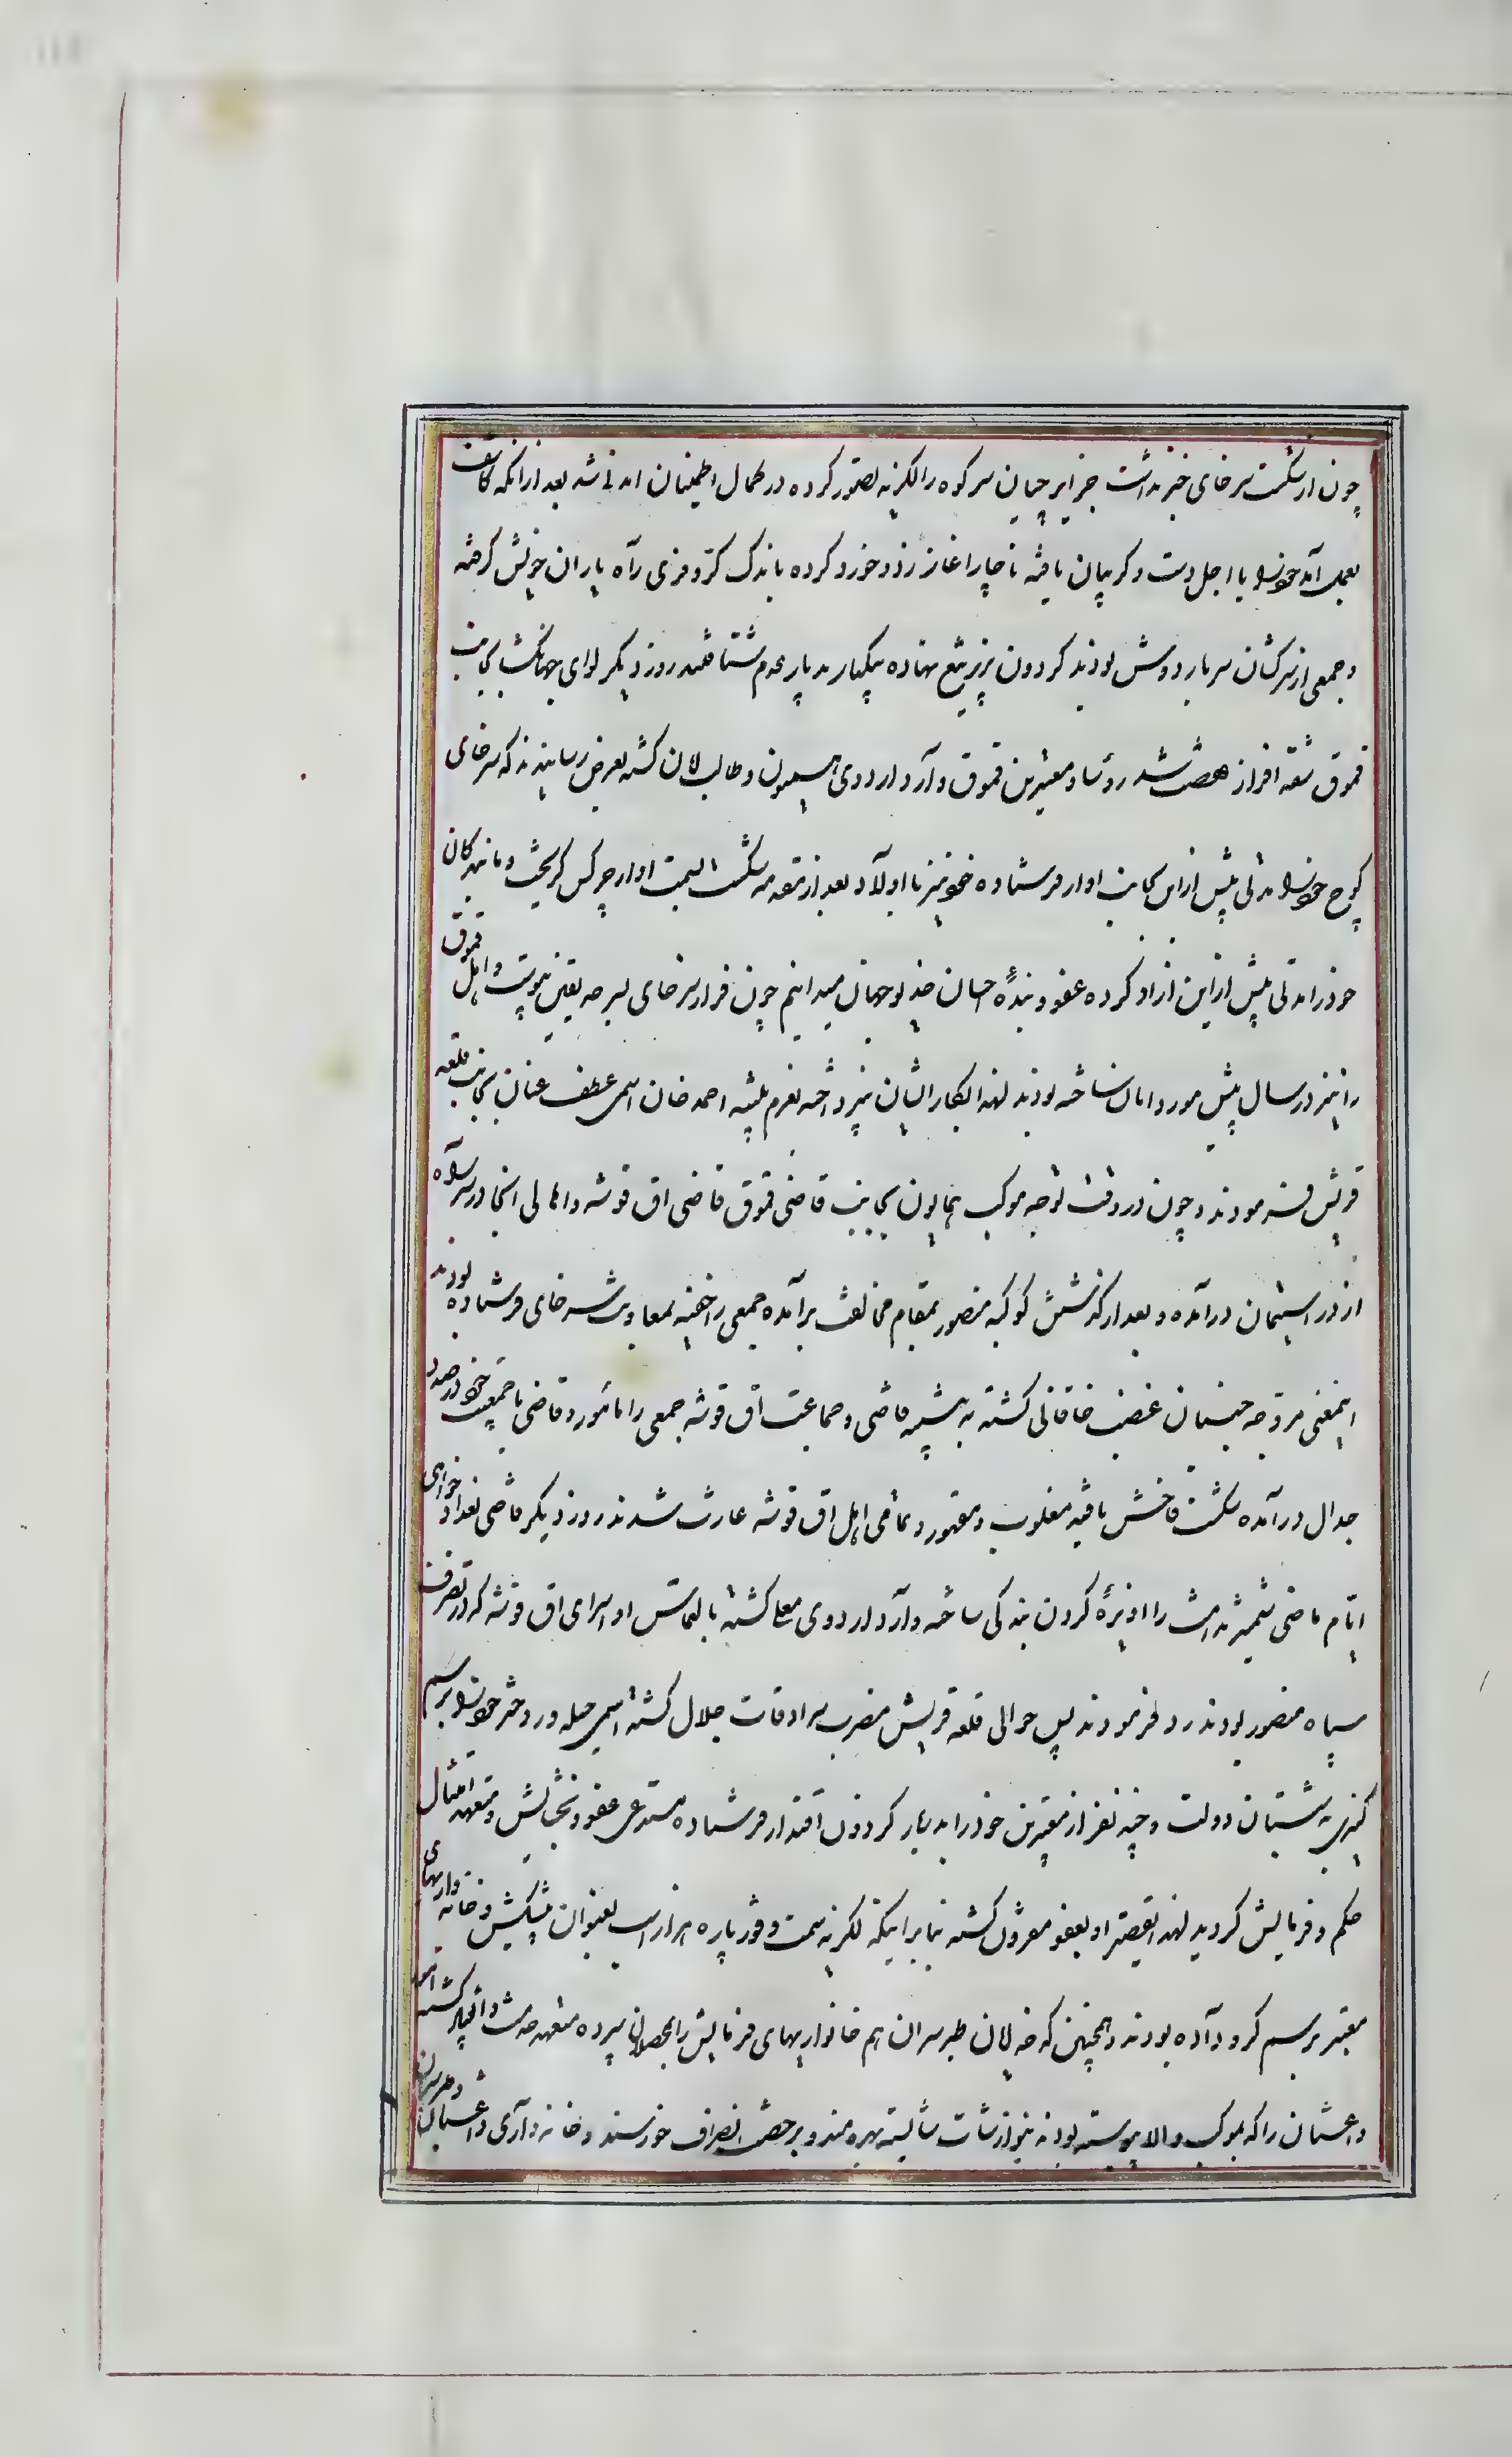 چون از شکست سرخای خبر نداشت جزایرچیان سرکوه را لکزیه تصور کرده در کمال اطمینان آمدنی شد بعد از آنکه کاشف
بعمل آمد خود را با اجل دست و گریبان یافته ناچار آغاز زد و خورد کرده باندک کرّ و فری راه یاران خویش گرفته
و جمعی از سرکشان سر بار دوش بودند گردون بزیر تیغ نهاده بیکبار بدیار عدم شتافتند روز دیگر لوای جهانگشا بجانب
قموق شقه افراز نهضت شد رؤسا و معتبرین قموق وارد اردوی همیون و طالب امان گشته بعرض رسانیدند که سرخای
کوچ خود را مدتی پیش از این بجانب اوار فرستاده خود نیز با اولاد بعد از مقدمه شکست بسمت اوار چرکس گریخت و ما بندگان
خود را مدتی پیش از این آزاد کرده عفو و بنده احسان خدیو جهان میدانیم چون فرار سرخای بسرحد یقین پیوست و اهل قموق
را نیز در سال پیش مورد امان ساخته بودند لهذا بکار ایشان نپرداخته بعزم تنبیه احمد خان اسمی عطف عنان بجانب قلعه
قریش فرمودند و چون در وقت توجه موکب همایون بجانب قاضی قموق قاضی اق قوشه و اهالی آنجا در سر راه
از در استیمان درآمده و بعد از گذشتن کوکبه منصور بمقام مخالفت برآمده جمعی را خفیه بمعاونت سرخای فرستاده بودند
اینمعنی مروّحه نیستان غضب خاقانی گشته به تنبیه قاضی و جماعت اق قوشه جمعی را مأمور و قاضی با جمعیت خود در صدد
جدال درآمده شکست فاحش یافته مغلوب و مقهور و تمامی اهل اق قوشه غارت شدند روز دیگر قاضی بعذر خواهی
ایّام ماضی شمشیر ندامت را آویزهٔ گردن بندگی ساخته وارد اردوی معلی گشته بالتماس او اسرای اق قوشه که در تصرف
سپاه منصور بودند رد فرمودند پس حوالی قلعه قریش مضرب سرادقات جلال گشته اسمی حیله ور دختر خود را برسم
کنیزی به شبستان دولت و چند نفر از معتبرین خود را بدربار گردون اقتدار فرستاده مستدعی عفو و بخشایش و متعهد امتثال
حکم و فرمایش گردید لهذا تقصیر او بعفو مقرون گشته بنابراینکه لکزیه سمت و فور پاره هزار اسب بعنوان پیشکش و خانه واریهای
معتبر برسم گرو داده بودند و همچنین که خدایان طبرسران هم خانواریهای فرمایش را بمحصلان سپرده متعهد خدمت و انقیاد گشته
داغستان را که بموکب والا پیوسته بودند بنوازشات شایسته بهره مند و برخصت انصراف خورسند و خانه واری داغستان و طبرسران